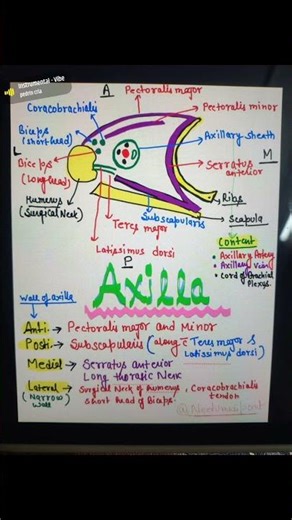 Instrumental - Vibe
pedro cria
A
Pectoralis major
Coracobrachialis
Pectoralis minor
Biceps
(short head)
Axillary sheath
L
M
Biceps
(Long head)
Serratus
anterior
Humerus
(Surgical Neck)
Ribs
Subscapularis
Scapula
Teres
major
Content
Latissimus dorsi
Axillary Artery
P
Axillary Vein
Cord of Brachial
Plexus.
Axilla
Wall of axilla
Ant:- → Pectoralis major and Minor
Post:- → Subscapularis (along c̄ Teres major &
Latissimus dorsi)
Medial → Serratus anterior
Long thoracic Nerve
Lateral → Surgical Neck of Humerus, Coracobrachialis
(Narrow
wall)
Short head of Biceps.
tendon